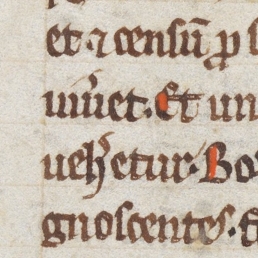 et ⁊ censū ꝓ
uiu̾et. Et un
ueh̾etur. Bo
gnoscentes. E